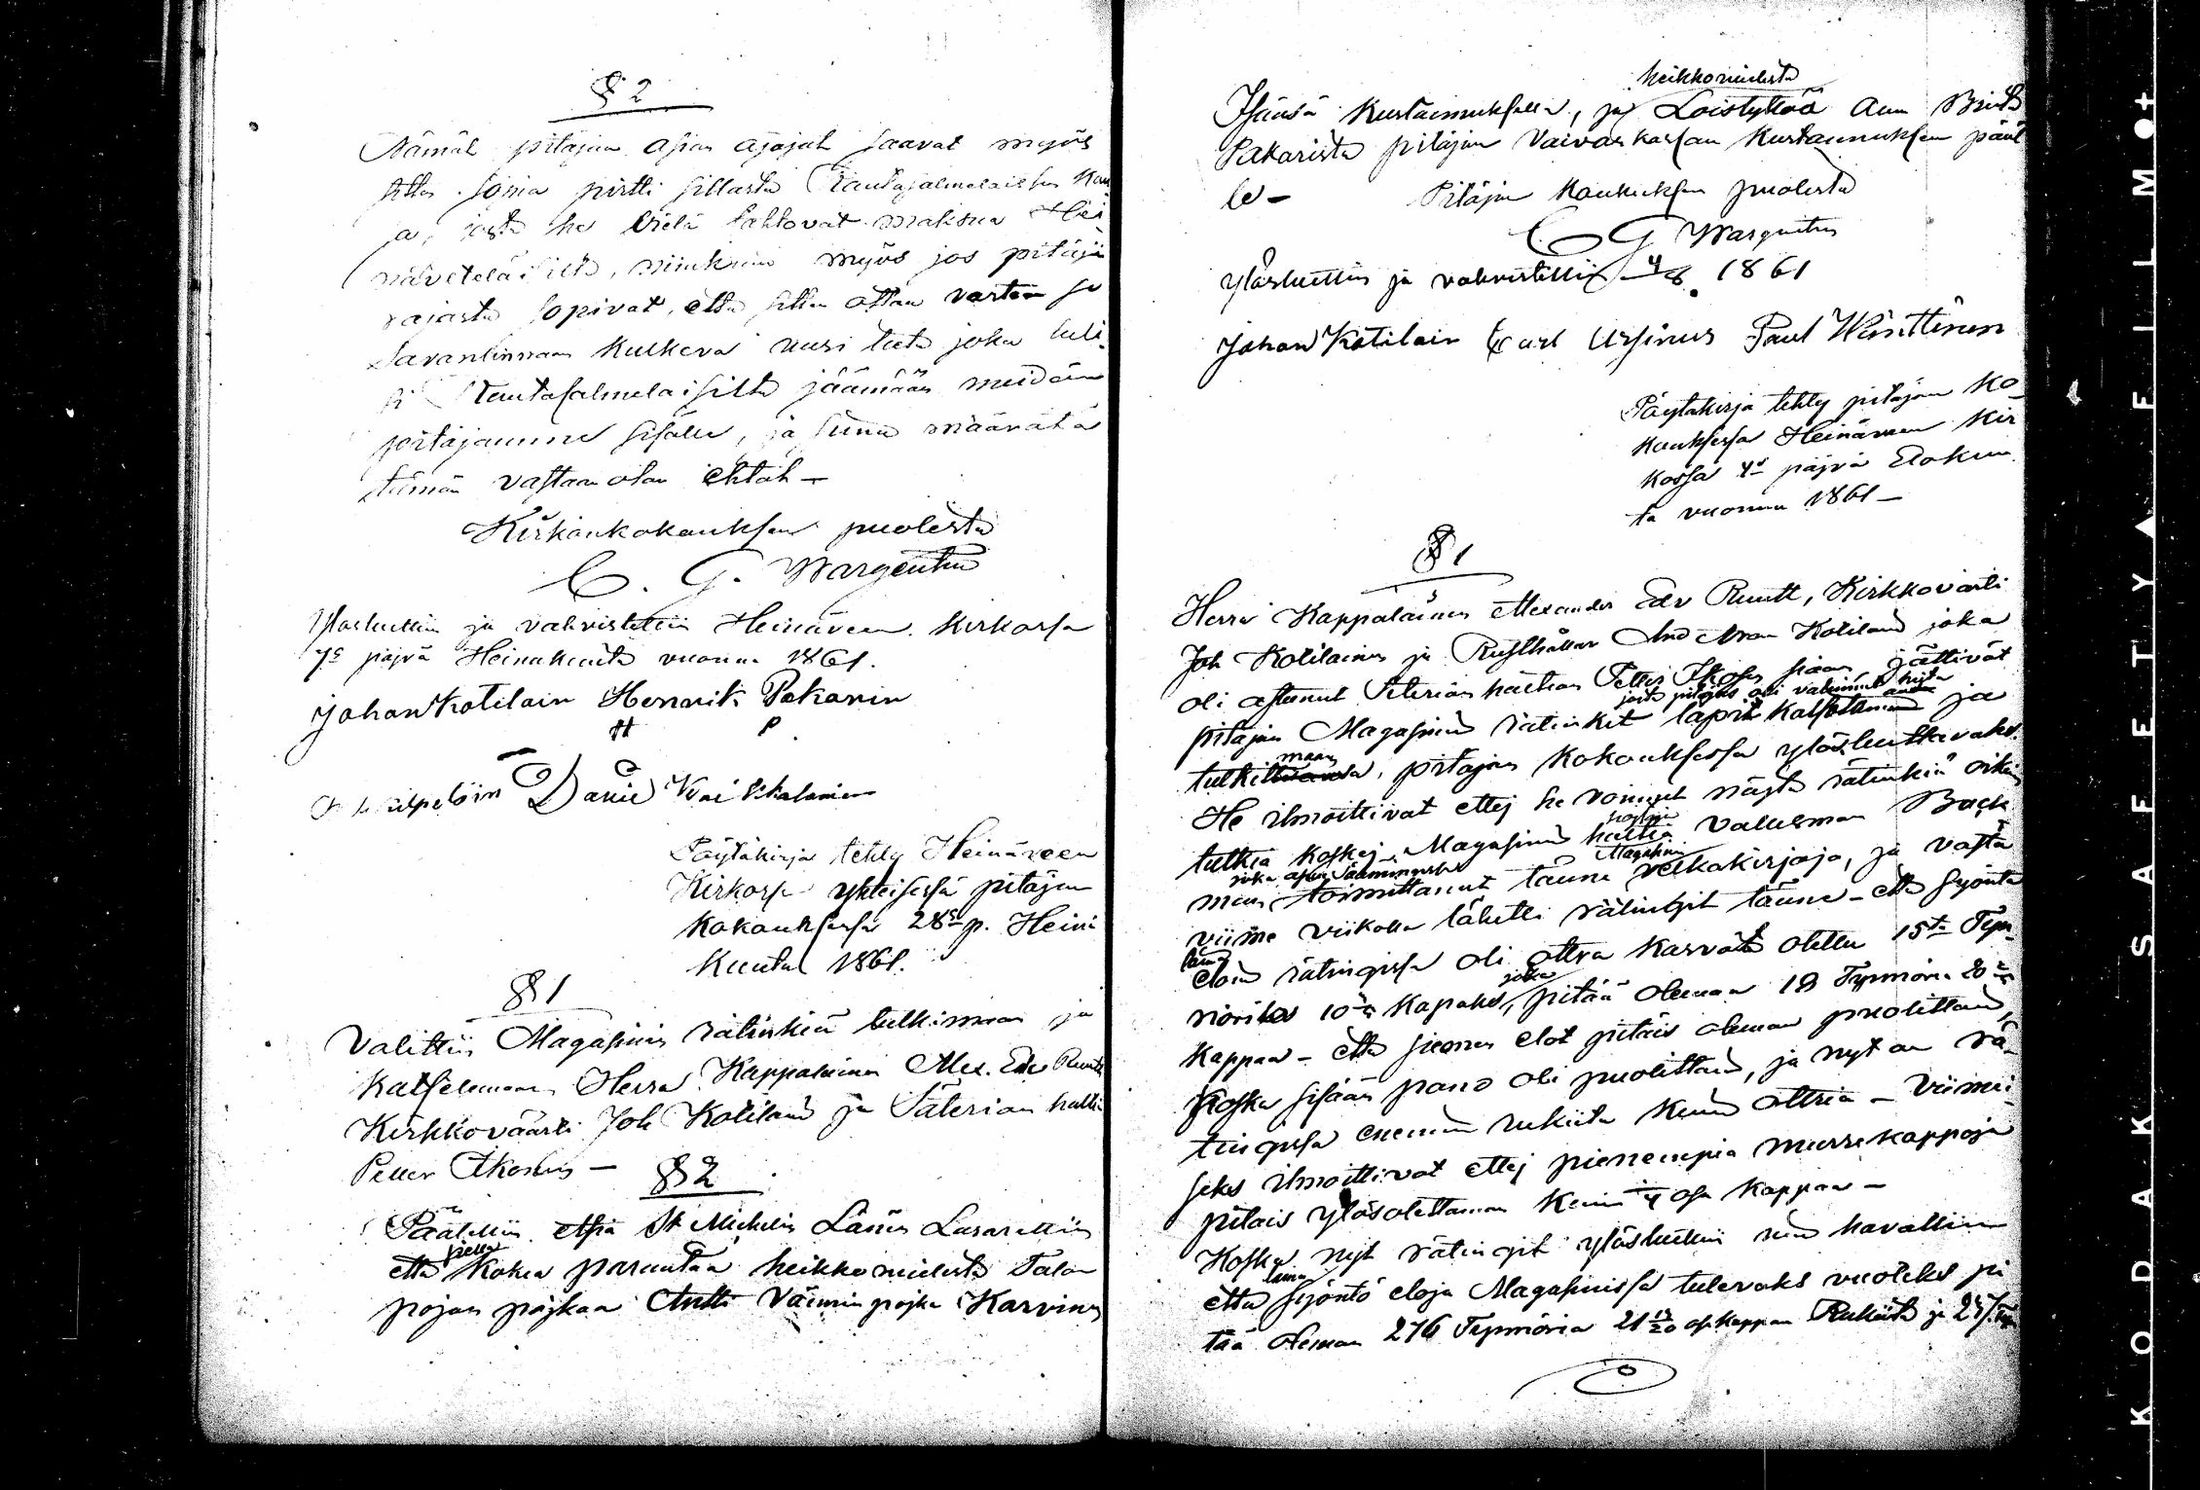 § 2
Nämät pitäjän asian ajajat saavat myös
sitte sopia pirtti sillasta Rantasalmelaisten kan
sa, josta he vielä tahtovat maksua Hei
näveteläisiltä, niinkuin myös jos pitäjän
rajasta sopivat, että sitte ottaa vastan se
Savonlinnaan kulkeva uusi tietä joka tuli
si Rantasalmelaisilta jäämään meidän
pitäjämme sisälle, ja sinne määrätä
tämän vastaan oton ehtoh —
Kirkonkokouksen puolesta
C. G. Wargentin
Ylösluettiin ja vahvistettiin Heinäveen kirkossa
7s päivä Heinäkuuta vuonna 1861.
Johan Kotilain Henrik Pakarin
H P
Daniel
Pöytäkirja tehty Heinäveen
Kirkossa yhteisessä pitäjän
Kokouksessa 28s p. Heinä
Kuuta 1861.
§ 1
Valittiin Magasinin rätinkiä tutkimaan ja
katselemaan Herra Kappalainen Alex. Edv Runtt
Kirkkoväärti Joh Kotilain ja Säterian haltia
Petter Ikonen —
§ 2
Päätettiin St Michelin Läänin Lasarettiin
että pitää kokea parantaa heikkomielistä Talon
pojan pojkaa Antti Väinnin pojka Karvinen
heikkomielistä
Isänsä kustannuksella, ja Loistyttöä Ann Briita
Pakarista pitäjän Vaivaskassan kustannuksen pääl
le — Pitäjän kokouksen puolesta
C G Wargentin
Ylösluettiin ja vahvistettiin 4/8 1861
Johan Kotilain Carl Ursinus Paul Wänttinen
Pöytäkirja tehty pitäjän Ko
kouksessa Heinäveen Kir
kossa 4s päjvä Elokuu
ta vuonna 1861 —
§ 1
Herra Kappalainen Alexander Edv Runtt, Kirkkovärti
Joh Kotilainen ja Rusthållar And Kotilain joka
oli astunut Säterian haltian Petter Ikosen siaan jättivät
josta pitäjäs oli valinnut
pitäjän Magasinin rätinkit läpi katsottamaan ja
maan
tutkittavansa, pitäjän kokouksessa ylösluettavaks.
He ilmoittivat ettej he voineet näistä rätinkiä oikein
tutkia koskej Magasinin haltia vallesman Back
joka asuu Säämingissä Magasinin
man toimittanut tänne velkakirjoja, ja vasta
viime viikolla lähetti rätingit tänne — että syöntö
laina
eloin rätingissä oli ottra karvate otettu 15ta Tyn
nöriks 10 kapaks, joka pitää oleman 18 Tynnöriä 20
kappaa — että siemen elot pitäis oleman puolittain,
koska sisään pano oli puolittain, ja nyt on rä
tingissä enemän rukiita kuin ottria — Viimei
seks ilmoittivat ettej pienempia murrekappoja
pitäis ylösotettaman kuin 1/4 osa kappaa —
Koska nyt rätingit ylösluettiin niin havattiin
laina
että syöntö eloja Magasinissa tulevaks vuoteks pi
tää oleman 276 Tynnöriä 21 13/20 os kappaa Rukiita ja 257
KODAK SAFETY FILM